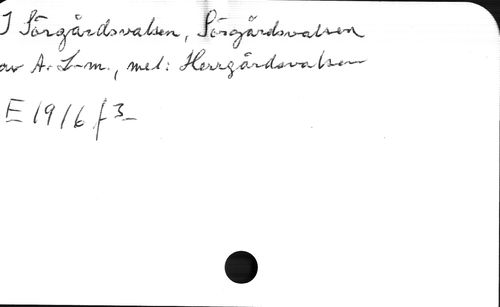 I Sörgårdsvalsen, Sörgårdsvalsen
av A. L-m., mel: Herrgårdsvalsen
E 1916 f 3